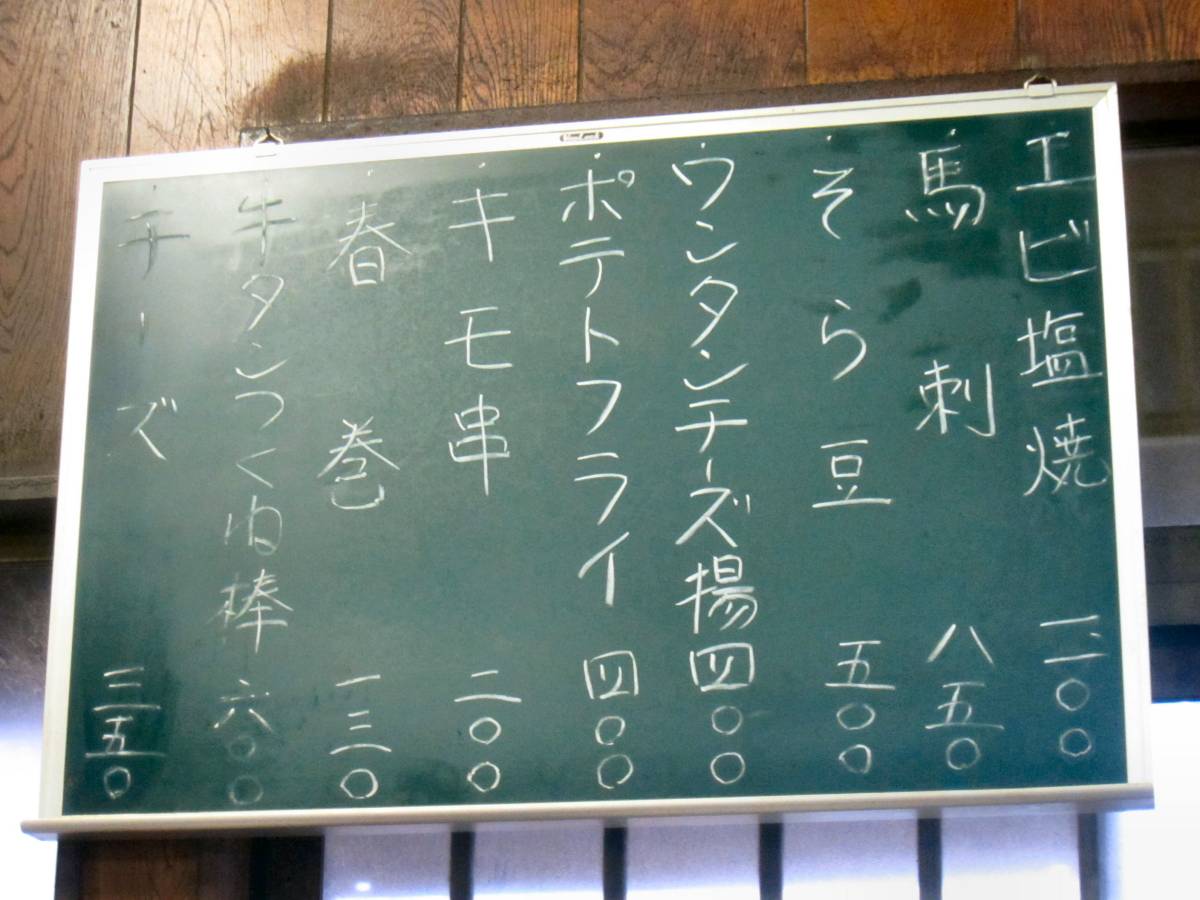 ・エビ塩焼 三〇〇
・馬刺 八五〇
・そら豆 五〇〇
・ウンタンチーズ揚 四〇〇
・ポテトフライ 四〇〇
・キモ串 二〇〇
・春巻 一三〇
・牛タンつくね棒 六〇〇
・チーズ 三五〇